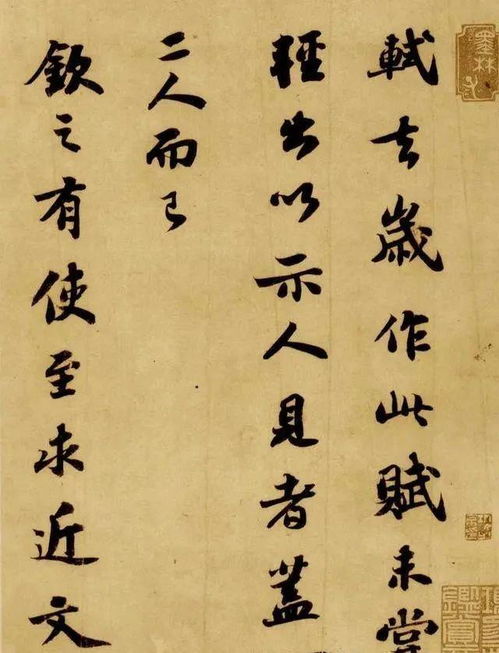 軾去歲作此賦未嘗
輕出以示人見者蓋
一二人而已
欽之有使至求近文